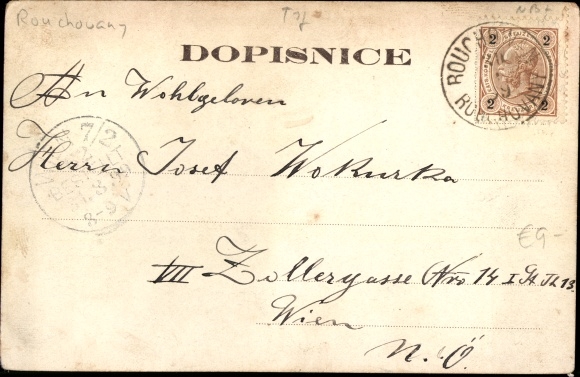 Rouchovany
NBF
DOPISNICE
2 2
2 2
ROUCHOVANY
An Wohlgeboren
7/2
Herrn Josef Wokurka
8-9 V
€9-
VII Zollergasse Nro 14 I St Th 13.
Wien
N.Ö.